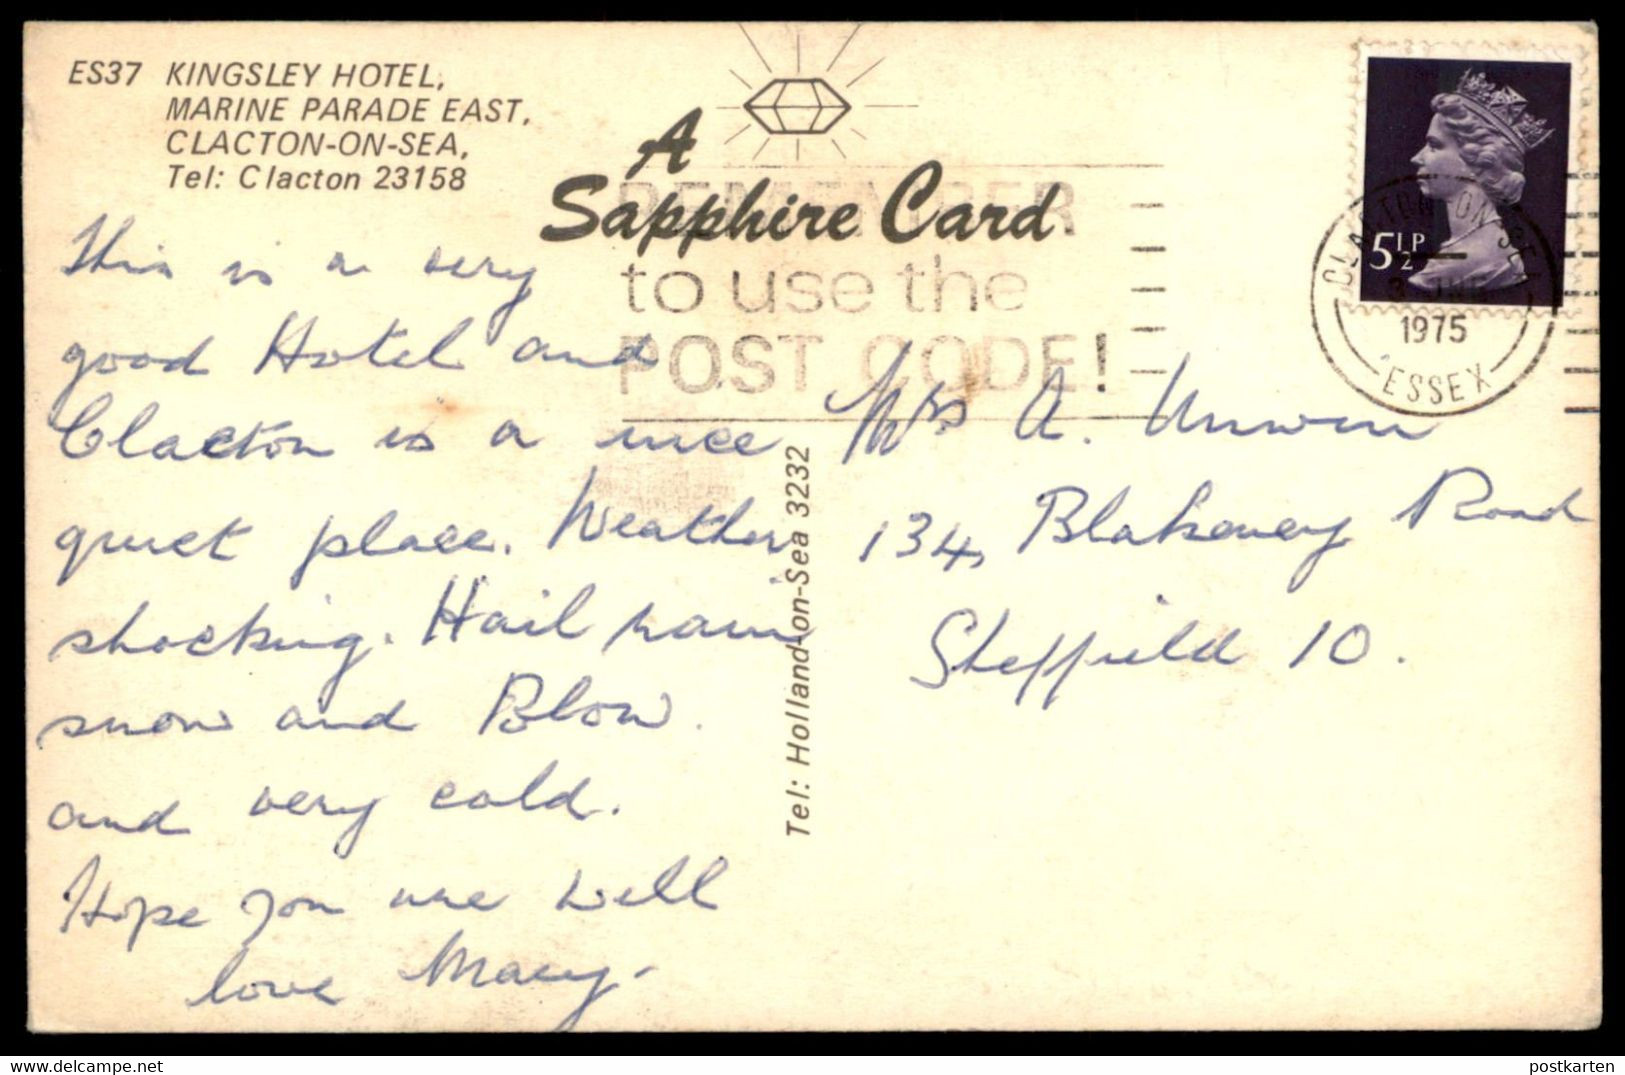 ES37 KINGSLEY HOTEL,
MARINE PARADE EAST,
CLACTON-ON-SEA,
Tel: Clacton 23158
A
Sapphire Card
REMEMBER
to use the
POST CODE!
5½P
CLACTON-ON-SEA
3 JNE
1975
ESSEX
This is a very
good Hotel and
Clacton is a nice
quiet place. Weather
shocking. Hail rain
snow and Blow.
and very cold.
Hope you are well
love Mary.
Tel: Holland-on-Sea 3232
Mrs A. Unwin
134, Blakeney Road
Sheffield 10.
delcampe.net
postkarten